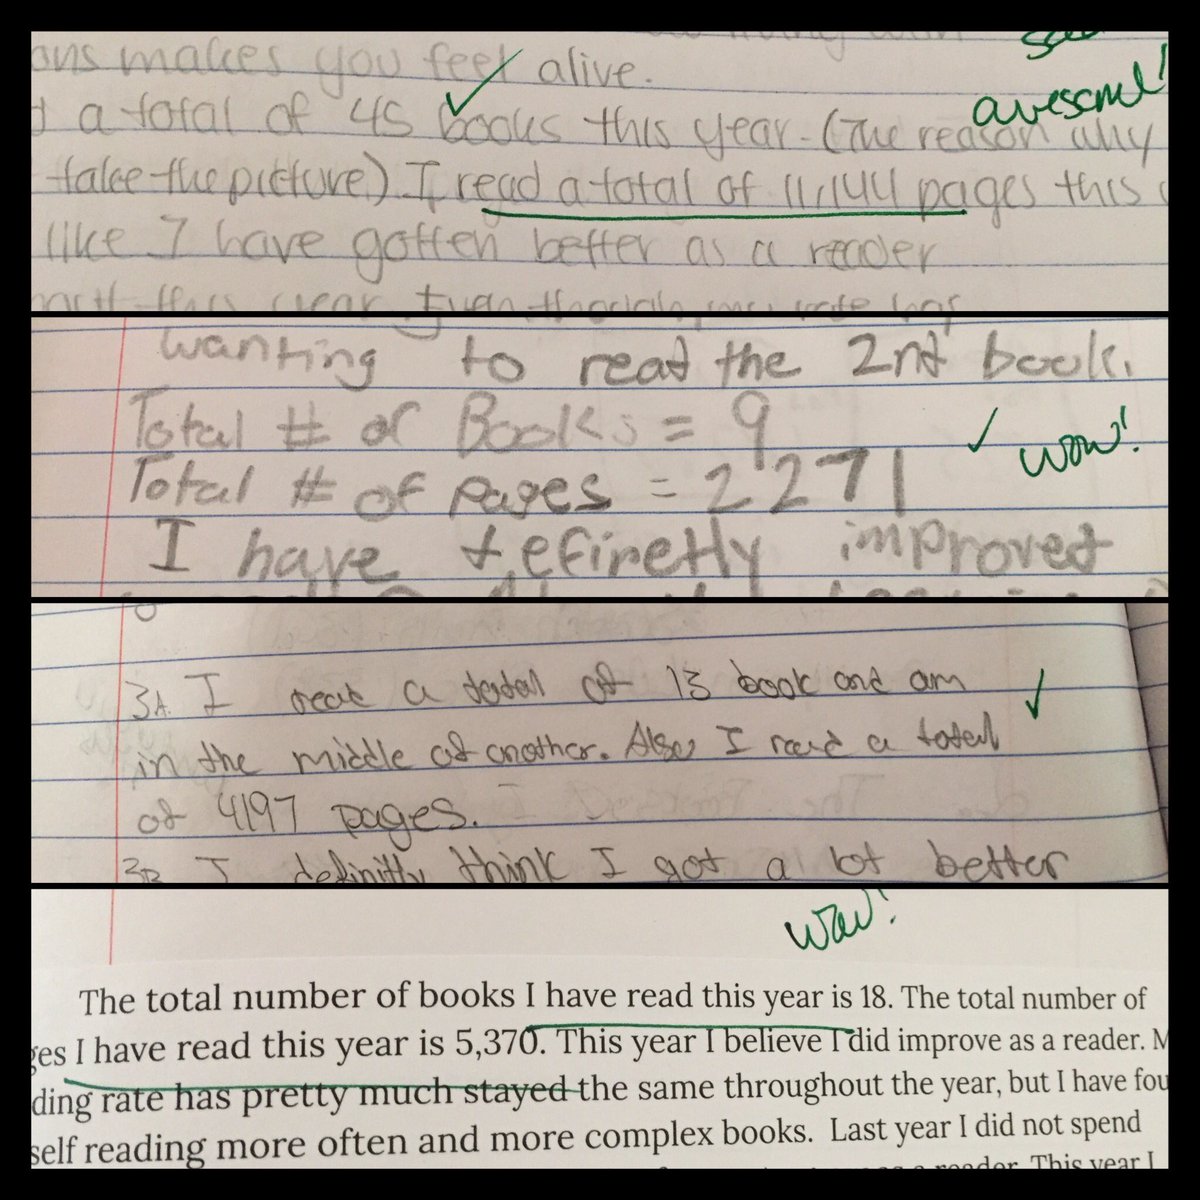 ons makes you feel alive.
awesome!
a total of 45 books this year. (The reason why
take the picture.) I read a total of 11,144 pages this
like I have gotten better as a reader
wanting to read the 2nd book.
Total # of Books = 9
wow!
Total # of pages = 2271
I have definetly improved
3A. I read a total of 13 book and am
in the middle of another. Also I read a total
of 4197 pages.
3B I definitly think I got a lot better
wow!
The total number of books I have read this year is 18. The total number of
ges I have read this year is 5,370. This year I believe I did improve as a reader. M
ding rate has pretty much stayed the same throughout the year, but I have fou
self reading more often and more complex books. Last year I did not spend
reader. This year I